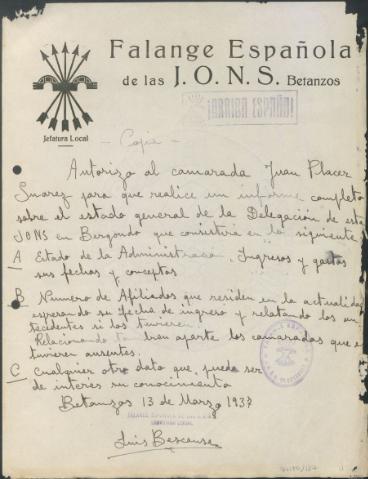 Falange Española
de las J.O.N.S. Betanzos
¡ARRIBA ESPAÑA!
Jefatura Local
- Copia -
Autorizo al camarada Juan Placer
Suarez para que realice un informe completo
sobre el estado general de la Delegación de esta
JONS en Bergondo que consistirá en lo siguiente
A Estado de la Administracion, Ingresos y gastos
sus fechas y conceptos
B Numero de Afiliados que residen en la actualidad
expresando su fecha de ingreso y relatando los an-
tecedentes si los tuvieren.
Relacionando tambien aparte los camaradas que es-
tuvieren ausentes.
C cualquier otro dato que pueda ser
de interés su conocimiento
Betanzos 13 de Marzo 1937
FALANGE ESPAÑOLA DE LAS J.O.N.S.
Luis Bescansa